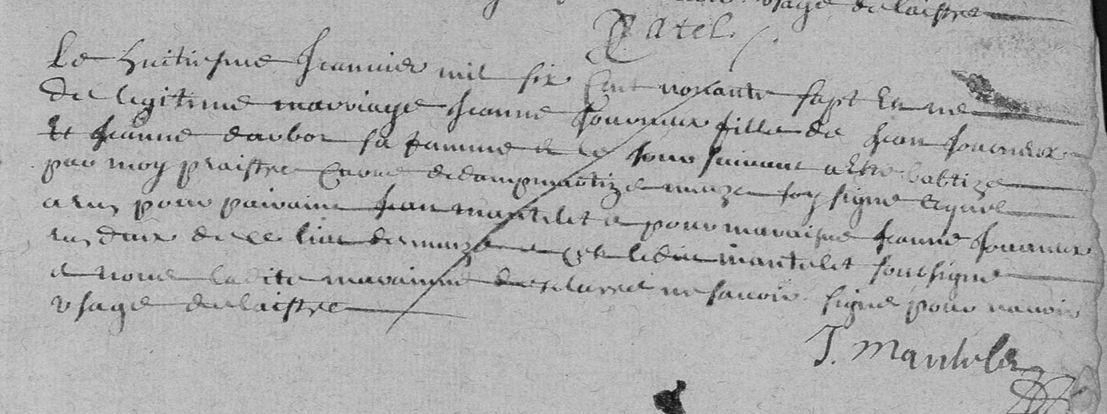 usage de laistre
Patel
Le huitiesme Jeanvier mil six cent nonante sept est ne
de legitime marriage Jeanne Jouvneux fille de Jean Jouvneux
et Jeanne darbot sa famme et le jour suivant a este babtize
par moy praistre Curé de dampmartin soy signé lequel
a eu pour pairain Jean mantelet e pour maraisne Jeanne Jouvneux
tous deux de ce lieu et ledit mantelet soussigné
e nous ladite maraine declarré ne savoir signe pour navoir
usage de laistre
J. Mantelet